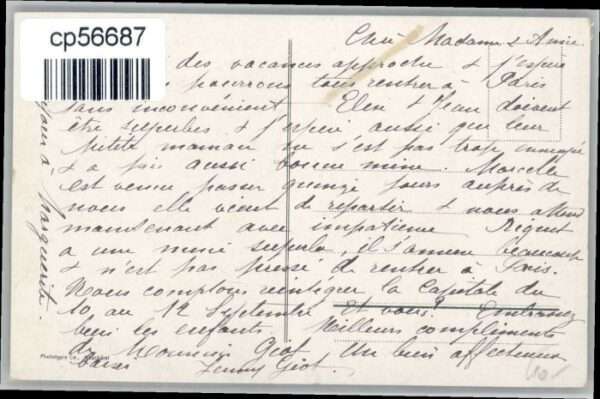 cp56687
Chère Madame & Amie
des vacances approche & j'espère
pourrons tous rentrer à Paris
sans inconvénient Elen & Jean doivent
être superbes & j'espère aussi que leur
petite maman ne s'est pas trop ennuyée
& a pris aussi bonne mine. Marcelle
est venue passer quinze jours auprès de
nous elle vient de repartir & nous attend
maintenant avec impatience
a une mine superbe, il s'amuse beaucoup
& n'est pas pressé de rentrer à Paris.
Nous comptons réintégrer la Capitale du
10 au 12 Septembre et vous? Embrassez
bien les enfants. Meilleurs compliments
de Monsieur Giot Un bien affectueux
baiser Jenny Giot.
à Marguerite.